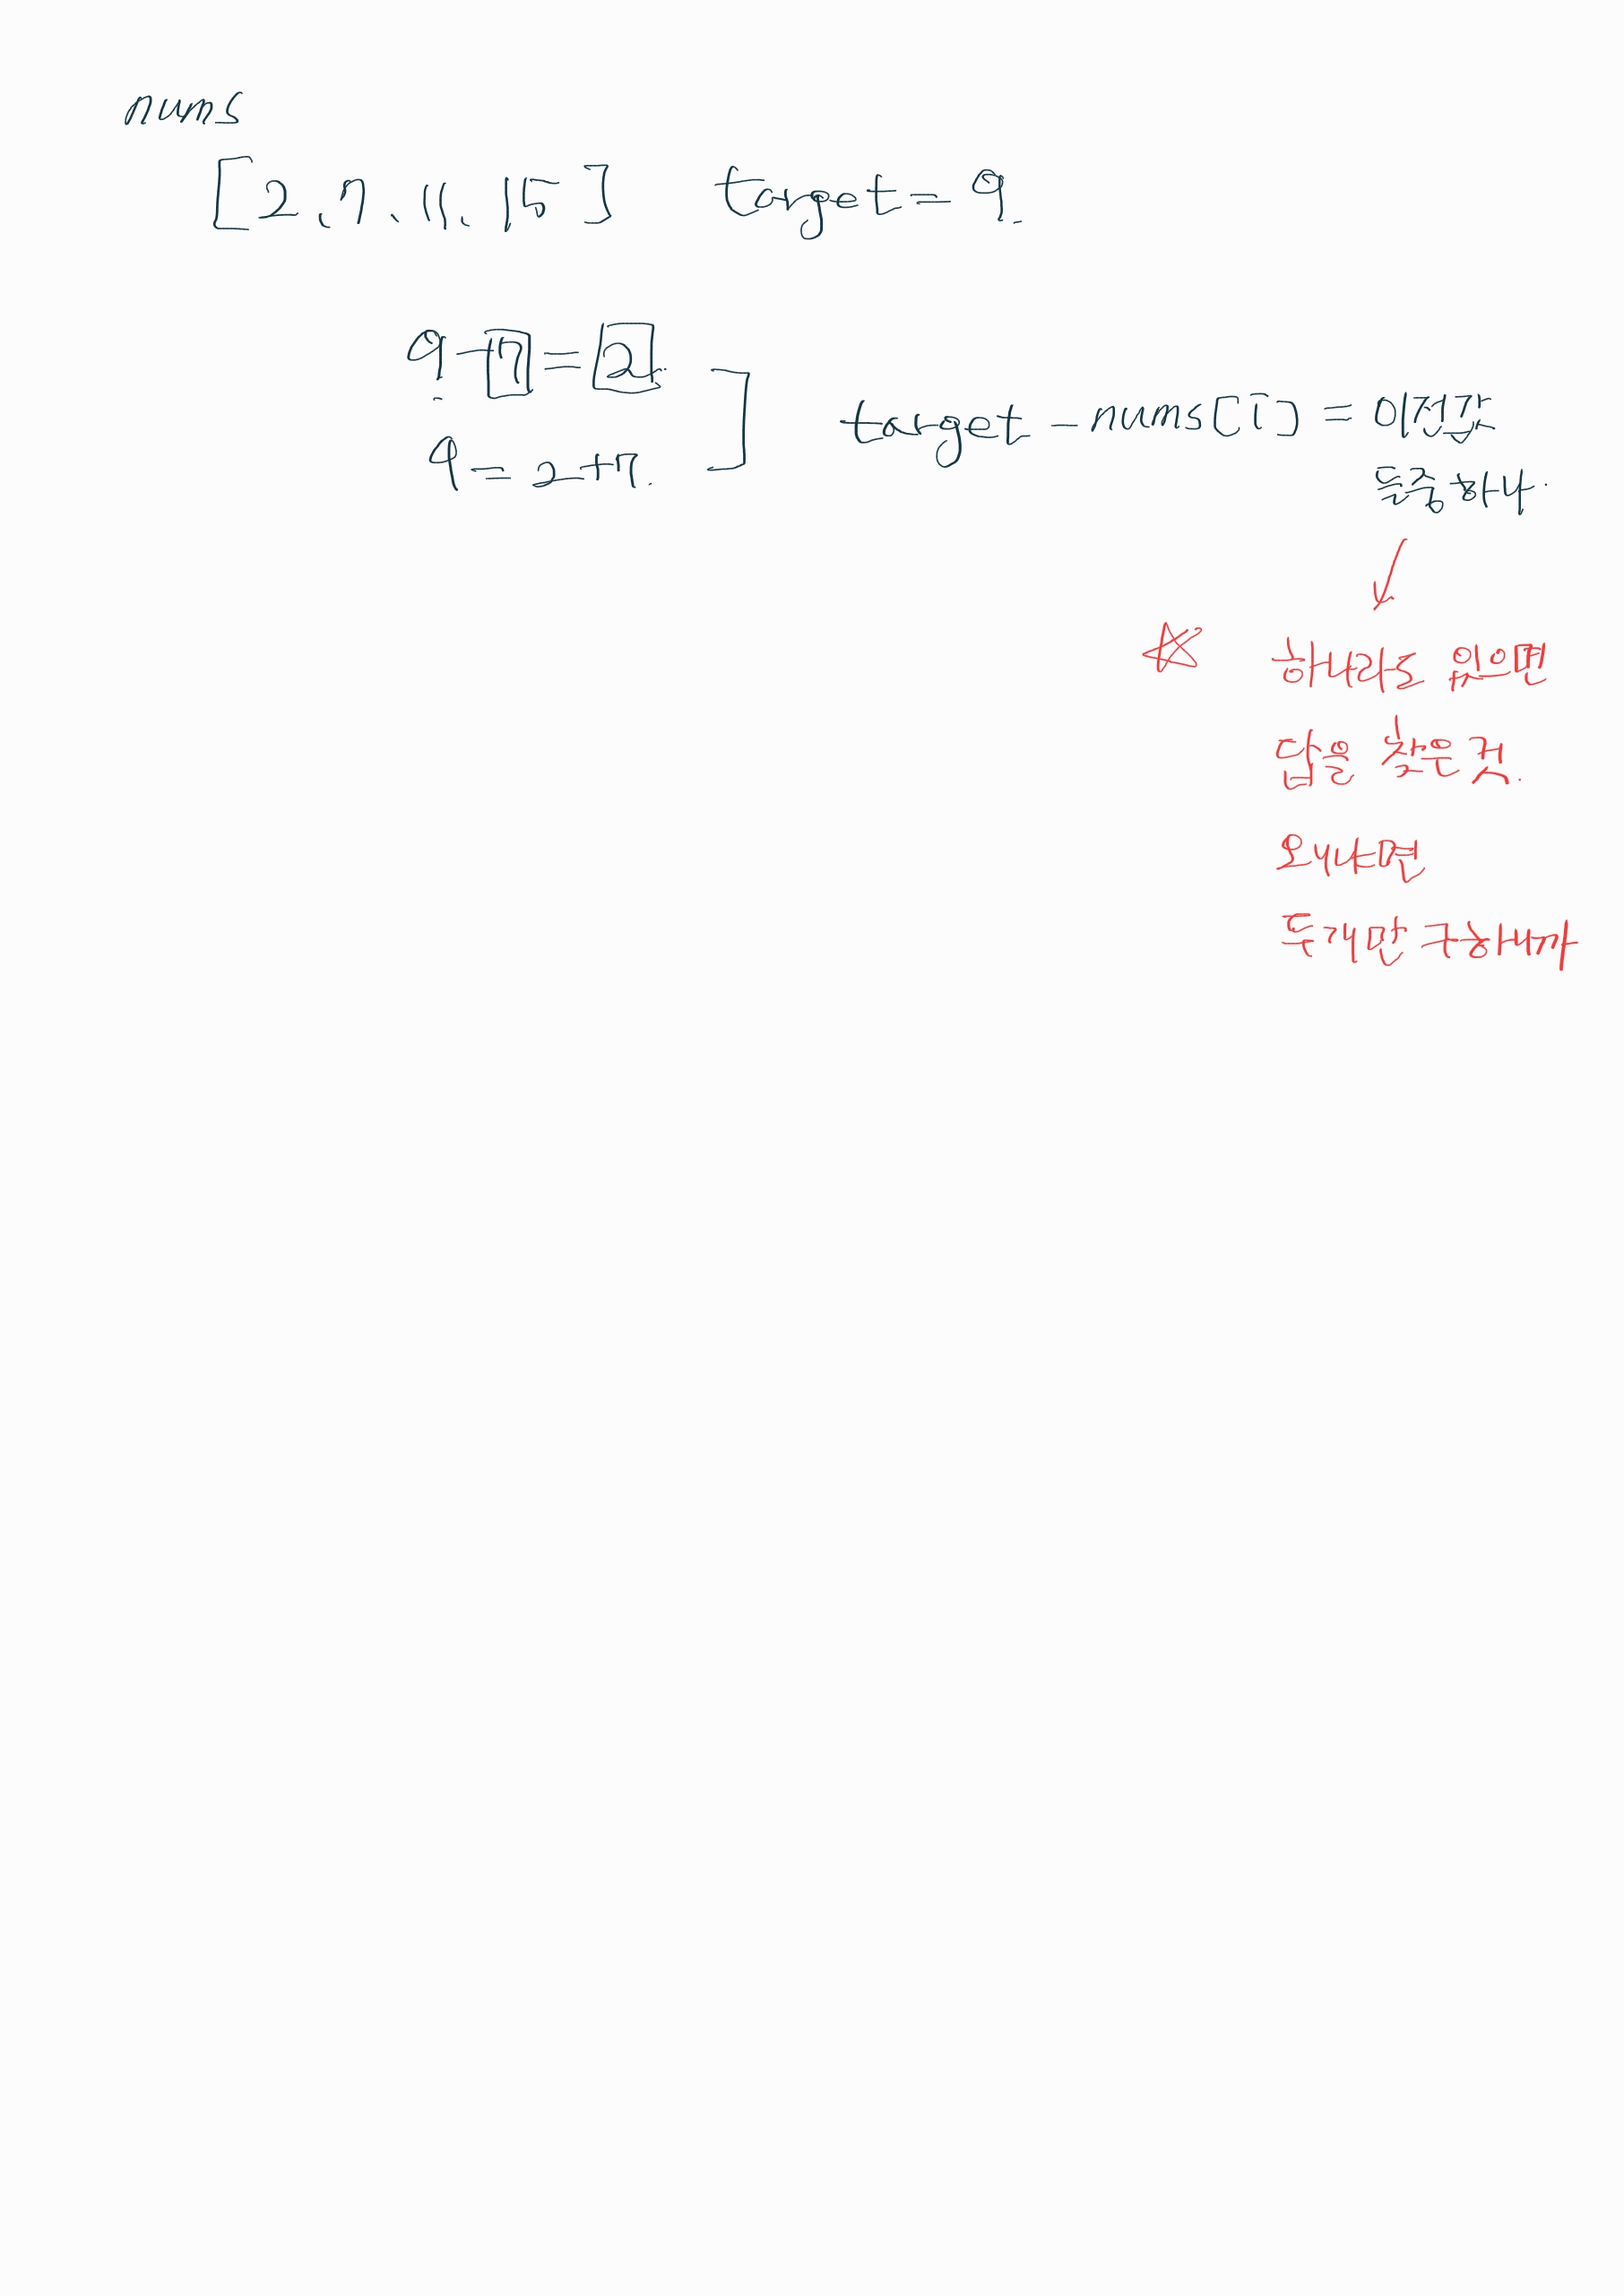 nums
[2, 7, 11, 15] target = 9.
9 - 7 = 2.
9 = 2+7.
target - nums[i] = 이전값
들중 하나.
하나라도 있으면
답을 찾은 것.
왜냐면
두개만 구하니까